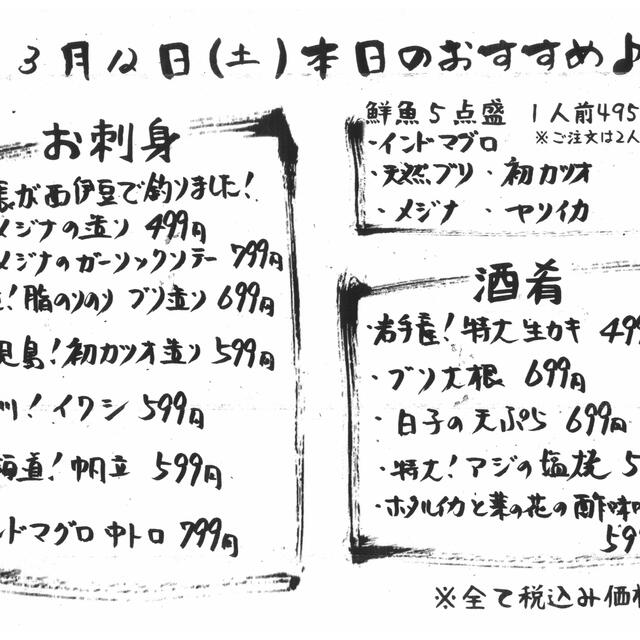 3月12日(土)本日のおすすめ♪
お刺身
が西伊豆で釣りました!
メジナの造り 499円
メジナのガーリックソテー 799円
!脂のりのり ブリ造り 699円
児島!初カツオ造り 599円
!イワシ 599円
海道!帆立 599円
ドマグロ 中トロ 799円
鮮魚5点盛 1人前495
※ご注文は2人
・インドマグロ
・天然ブリ ・初カツオ
・メジナ ・ヤリイカ
酒肴
・岩手産!特大生カキ 499
・ブリ大根 699円
・白子の天ぷら 699円
・特大!アジの塩焼 5
・ホタルイカと菜の花の酢味
599
※全て税込み価格